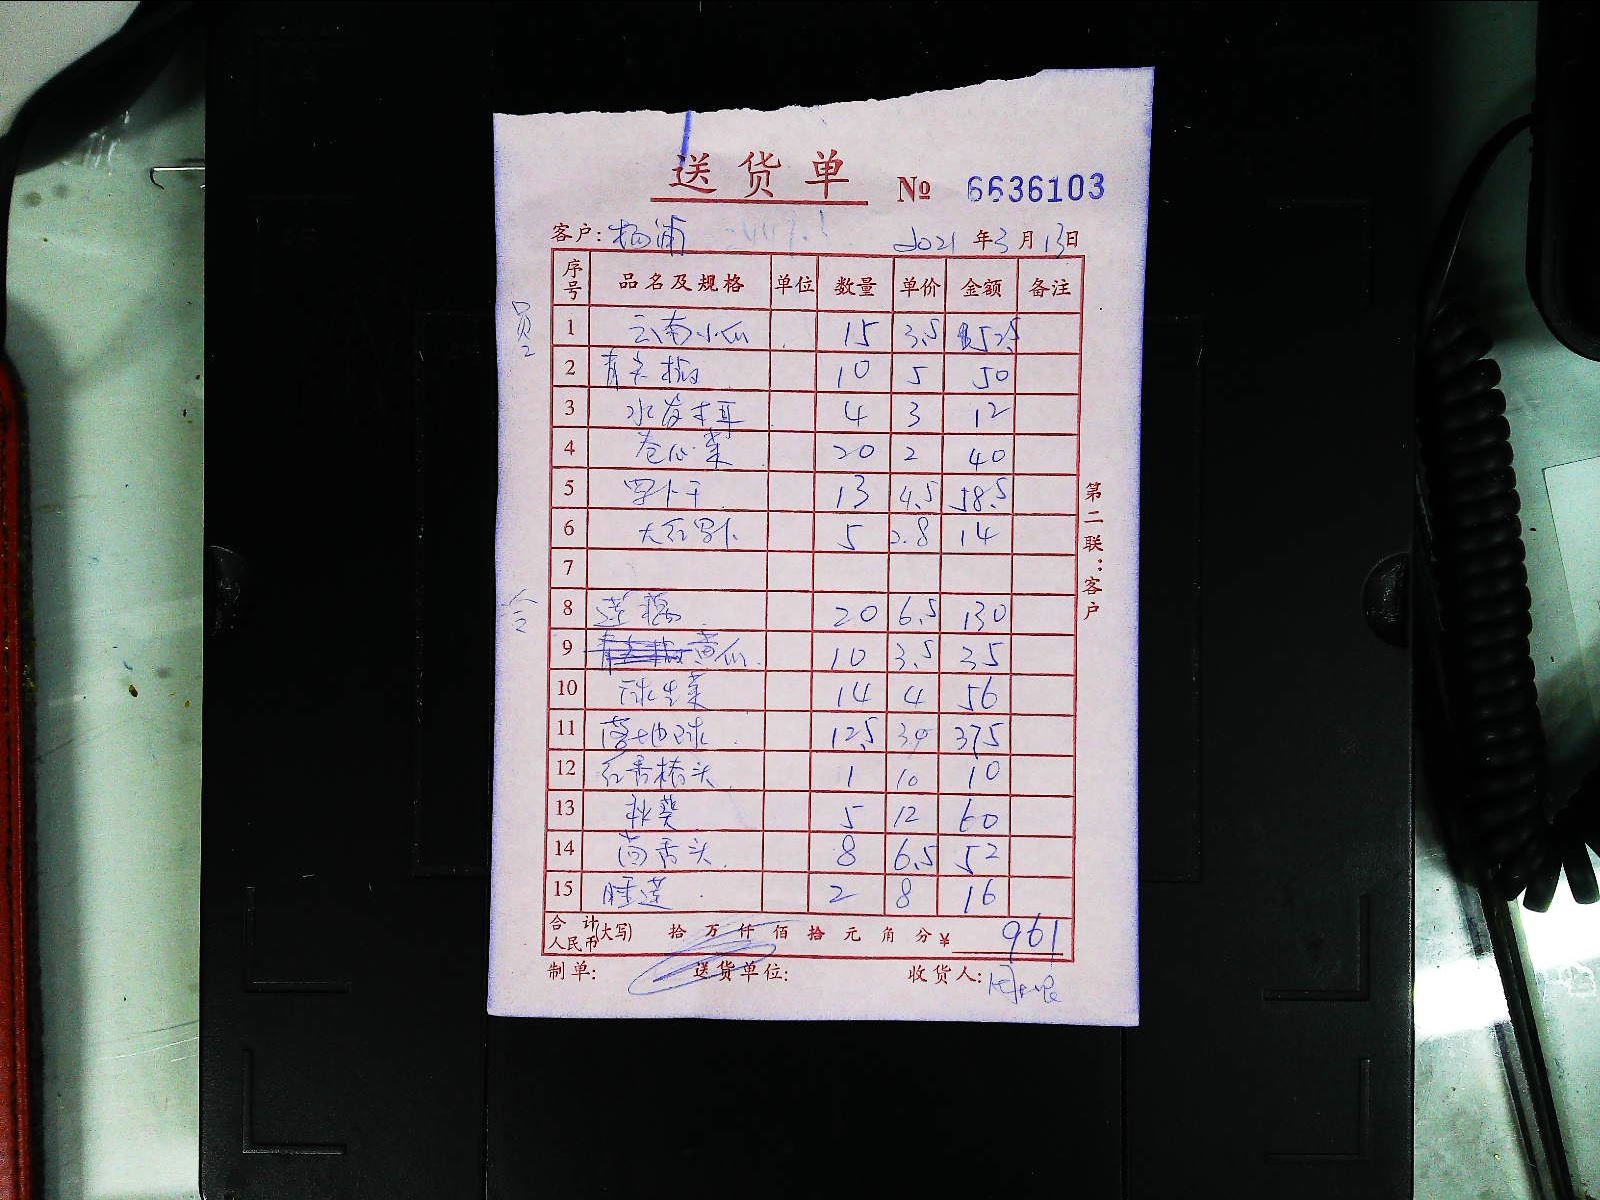 送货单 № 6636103
客户: 杨浦 2021 年 3 月 13 日
序号 品名及规格 单位 数量 单价 金额 备注
员2
1 云南小瓜 15 3.5 52.5
2 青尖椒 10 5 50
3 水发木耳 4 3 12
4 卷心菜 20 2 40
5 罗卜干 13 4.5 58.5
6 大红罗卜 5 2.8 14
7
8 莲藕 20 6.5 130
9 黄瓜 10 3.5 35
10 球生菜 14 4 56
11 落地球 12.5 30 375
12 1 10 10
13 秋葵 5 12 60
14 8 6.5 52
15 睡莲 2 8 16
合计人民币(大写) 拾 万 仟 佰 拾 元 角 分 ¥ 961
制单: 送货单位: 收货人:
第二联:客户